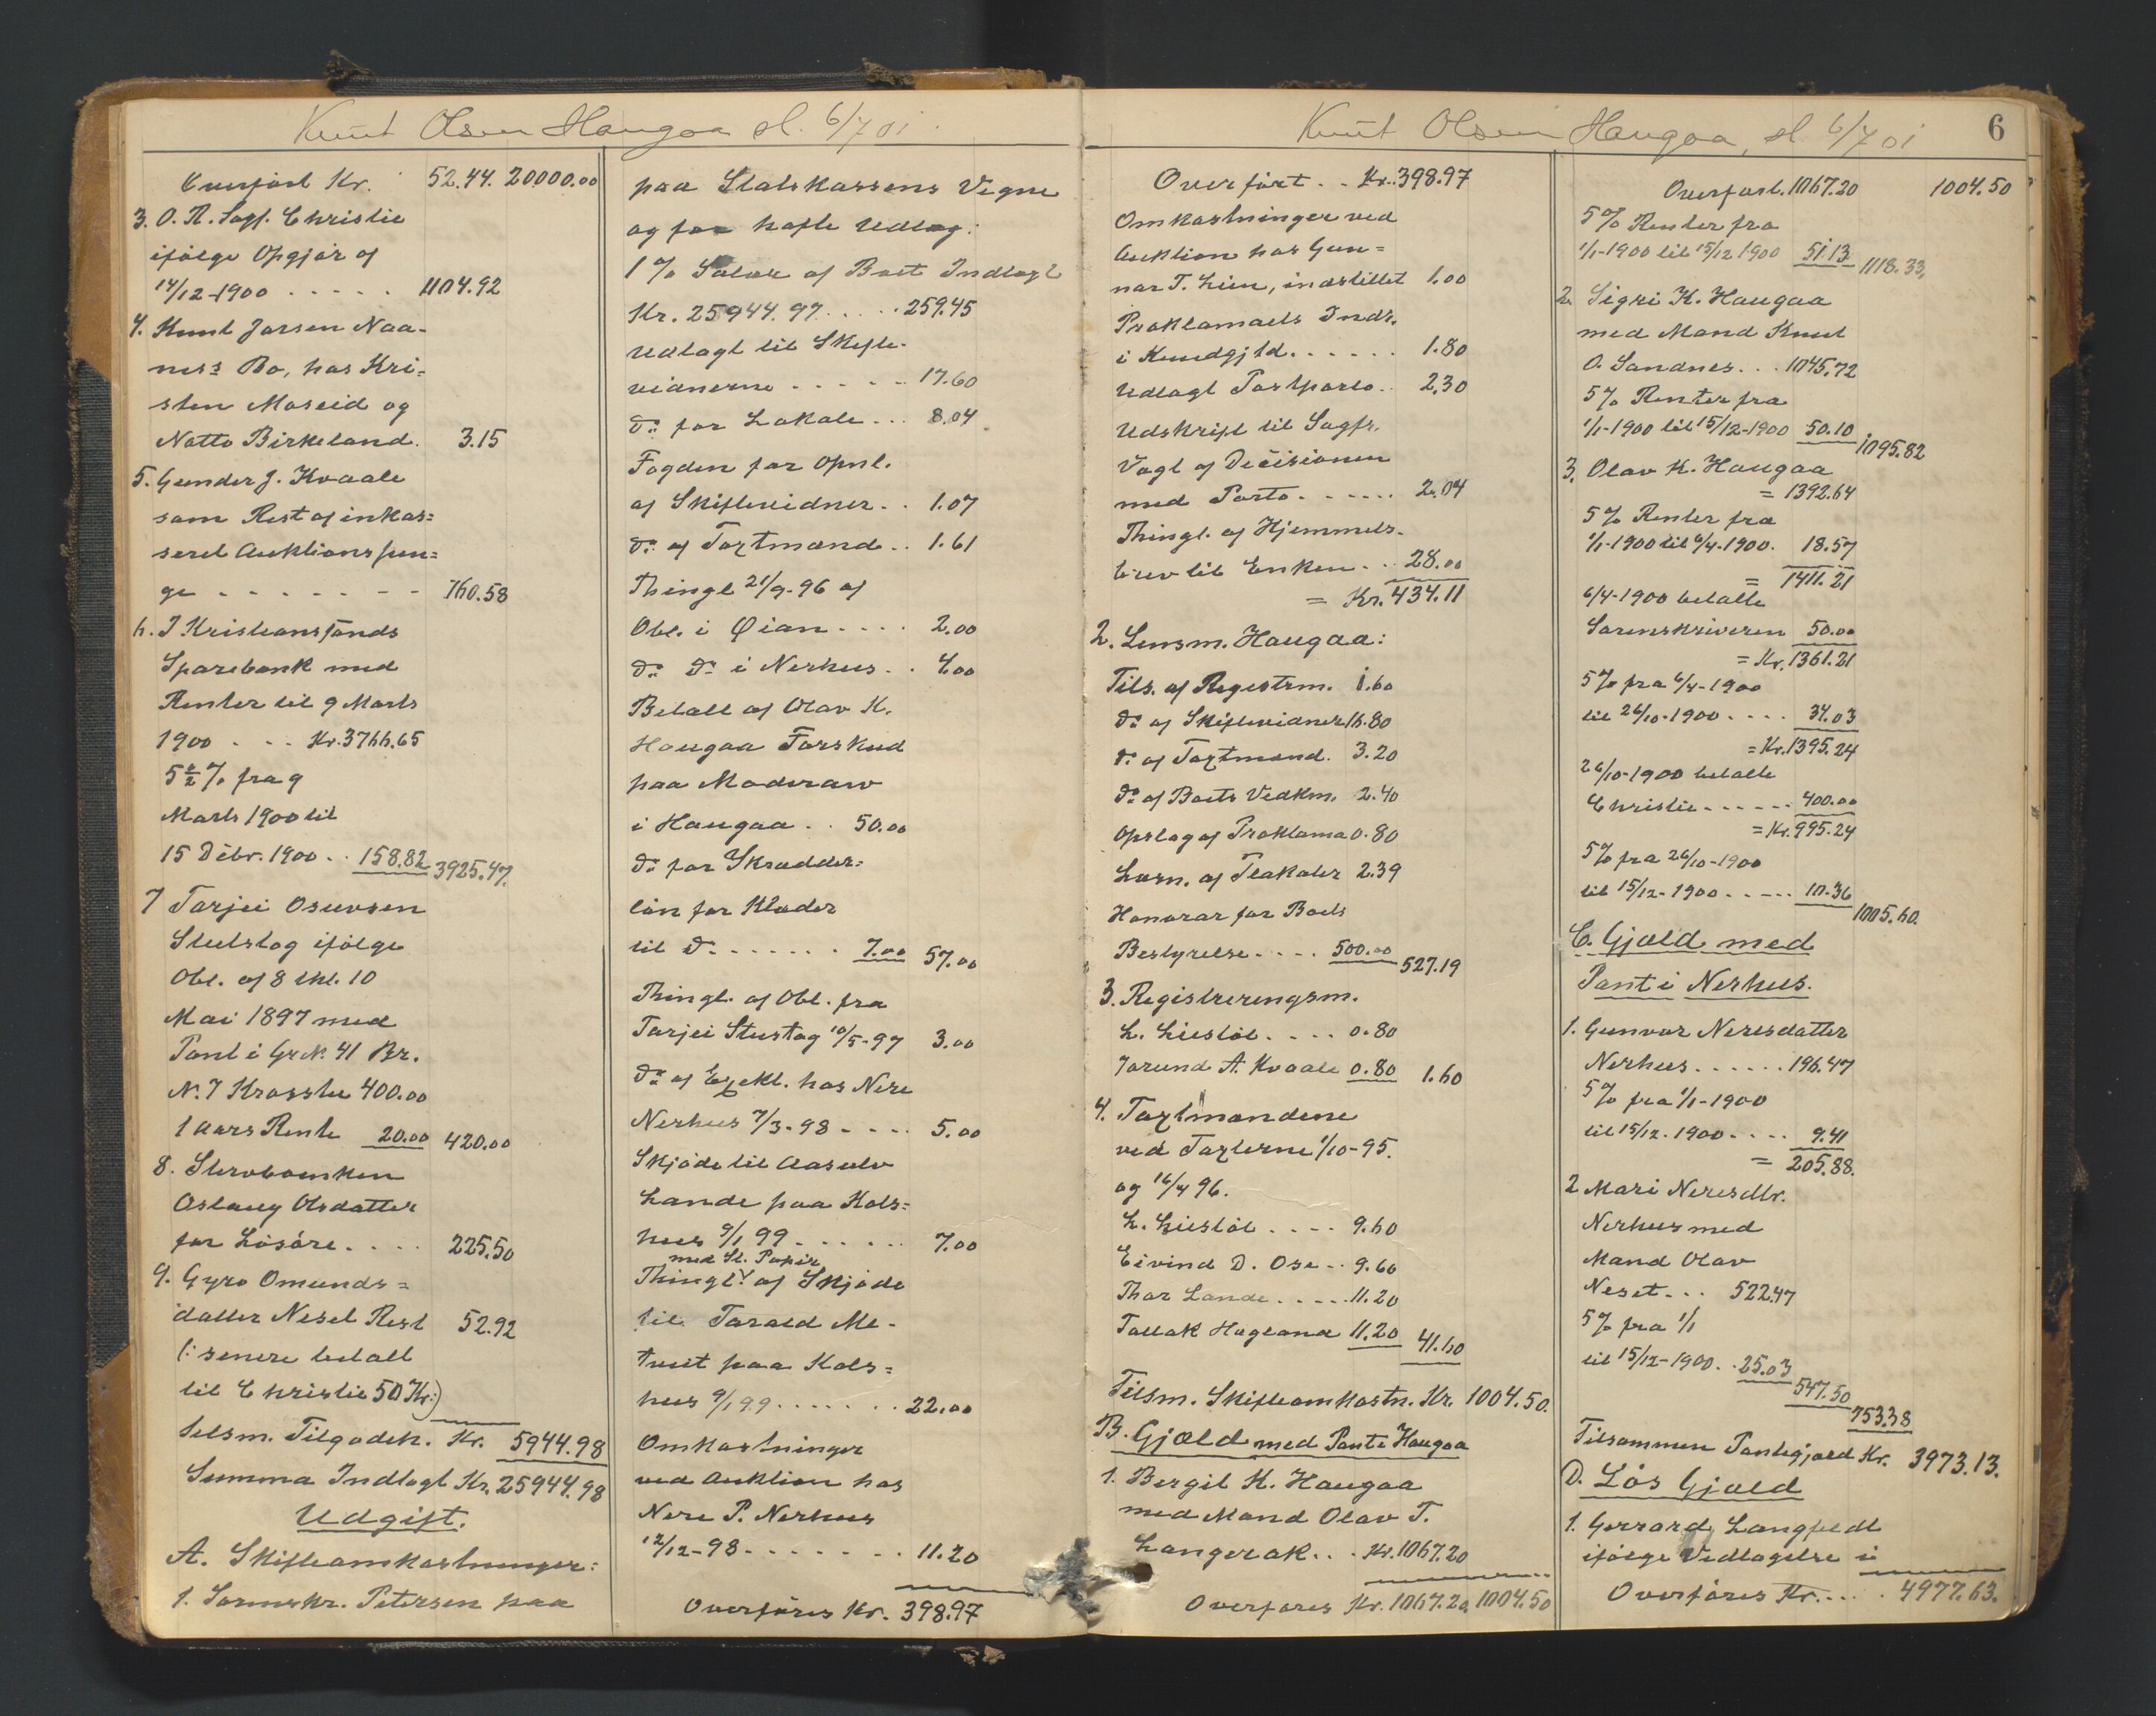 Knut Olsen Haugaa sl. 6/7 01.
Overført Kr. 52.44. 20000.00
3. O. R. Sagf. Christie
ifølge Opgjør af
14/12-1900 . . . . . 1104.92
4. Knut Jorsen Naa-
ness Bo, hos Kri-
sten Moseid og
Notto Birkeland. 3.15
5. Gunder J. Kvaale
som Rest af inkas=
seret Auktionspen=
ge - - - - - - - 760.58
6. I Kristiansands
Sparebank med
Renter til 9 Marts
1900 . . . Kr. 3766.65
5½ % fra 9
Marts 1900 til
15 Debr. 1900 . . 158.82 3925.47.
7 Tarjei Osuvsen
Stulstog ifølge
Obl. af 8 thl. 10
Mai 1897 med
Pant i Gr.N. 41 Br.
N. 7 Krosshu 400.00
1 Aars Rente 20.00 420.00
8. Stervboenken
Aslaug Olsdatter
for Løsøre . . . . 225.50
9. Gyro Omunds=
datter Neset Rest 52.92
(: senere betalt
til Christie 50 Kr :)
tilsm. Tilgodeh. Kr. 5944.98
Summa Indtægt Kr. 25944.98
Udgift.
A. Skifteomkostninger:
1. Sorenskr. Petersen paa
paa Statskassens Vegne
og for hafte Udlæg:
1 % Salær af Boet Indtægt
Kr. 25944.97 . . . . . 259.45
Udlagt til Skifte-
vidnerne - - - - - - 17.60
Do for Lokale . . . 8.04
Fogden for Opnl.
af Skiftevidner . . 1.07
Do af Taxtmænd . . 1.61
Thingl 21/9-96 af
Obl. i Øian - - - - 2.00
Do Do i Nerhus . . 4.00
Betalt af Olav K.
Haugaa Forskud
paa Moderarv
i Haugaa . . 50.00
Do for Skrædder=
løn for Klæder
til Do . . . . . . 7.00 57.00
Thingl. af Obl. fra
Tarjei Stustog 10/5-97 3.00
Do af Exekt. hos Nere
Nerhus 7/3-98 - - - - 5.00
Skjøde til Aasulv
Lande paa Kols=
hus 9/1 99 - - - - - - 7.00
med St. Papir
Thingl. af Skjøde
til Tarald Me-
tveit paa Kols=
hus 9/1 99 . . . . . . . 22.00
Omkostninger
ved Auktion hos
Nere P. Nerhus
12/12-98 - - - - - - - 11.20
Overføres Kr. 398.97
Knut Olsen Haugaa, sl 6/7 01
6
Overført . . Kr. 398.97
Omkostninger ved
Auktion hos Gun=
nar T. Lien, indstillet 1.00
Proklamaets Indr.
i Kundgjtd. . . . . . 1.80
Udlagt Postporto . . 2.30
Udskrift til Sagfr.
Vogt af Decisionen
med Porto - - - - - - 2.04
Thingl. af Hjemmels-
brev til Enken . . 28.00
= Kr. 434.11
2. Lensm. Haugaa:
Tils. af Registrm. 1.60
Do af Skiftevidner 16.80
Do af Taxtmænd. 3.20
Do af Boets Vedkm. 2.40
Opslag af Proklama 0.80
Læsn. af Plakater 2.39
Honorar for Boets
Bestyrelse . . . . 500.00 527.19
3. Registreringsm.
L. Liestøl . . . . 0.80
Jorund A. Kvaale 0.80 1.60
4. Taxtmændene
ved Taxterne 1/10-95.
og 16/4 96.
L. Liestøl . . . . 9.60
Eivind D. Ose . . 9.60
Thor Lande . . . . . 11.20
Tallak Hageland 11.20 41.60
Tilsm. Skifteomkostn. Kr. 1004.50.
B. Gjæld med Pant i Haugaa
1. Bergit K. Haugaa
med Mand Olav T.
Langerak . . . Kr. 1067.20
Overføres Kr. 1067.20 1004.50
Overført. 1067.20 1004.50
5 % Renter fra
1/1-1900 til 15/12 1900 51.13 1118.33,
2. Sigri K. Haugaa
med Mand Knut
O. Sandnes . . . 1045.72
5 % Renter fra
1/1-1900 til 15/12-1900 50.10 1095.82
3. Olav K. Haugaa
= 1392.64
5 % Renter fra
1/1-1900 til 6/4-1900. 18.57
= 1411.21
6/4-1900 betalte
Sorenskriveren 50.00
= Kr. 1361.21
5 % fra 6/4-1900
til 26/10-1900 . . . . 34.03
= Kr. 1395.24
26/10-1900 betalte
Christie - - - - - - 400.00
= Kr. 995.24
5 % fra 26/10-1900
til 15/12-1900 . - - - - 10.36 1005.60.
C. Gjæld med
Pant i Nerhus.
1. Gunvor Neresdatter
Nerhus . . . . . . 196.47
5 % fra 1/1-1900
til 15/12.1900 . . . . 9.41
= 205.88.
2 Mari Neresdtr.
Nerhus med
Mand Olav
Neset . . . 522.47
5 % fra 1/1
til 15/12-1900 . . 25.03
547.50
753.38
Tilsammen Pantegjæld Kr. 3973.13.
D. Løs Gjæld
1. Gerrard Langfeldt
ifølge Vedtagelse i
Overføres Kr. . . . . 4977.63.